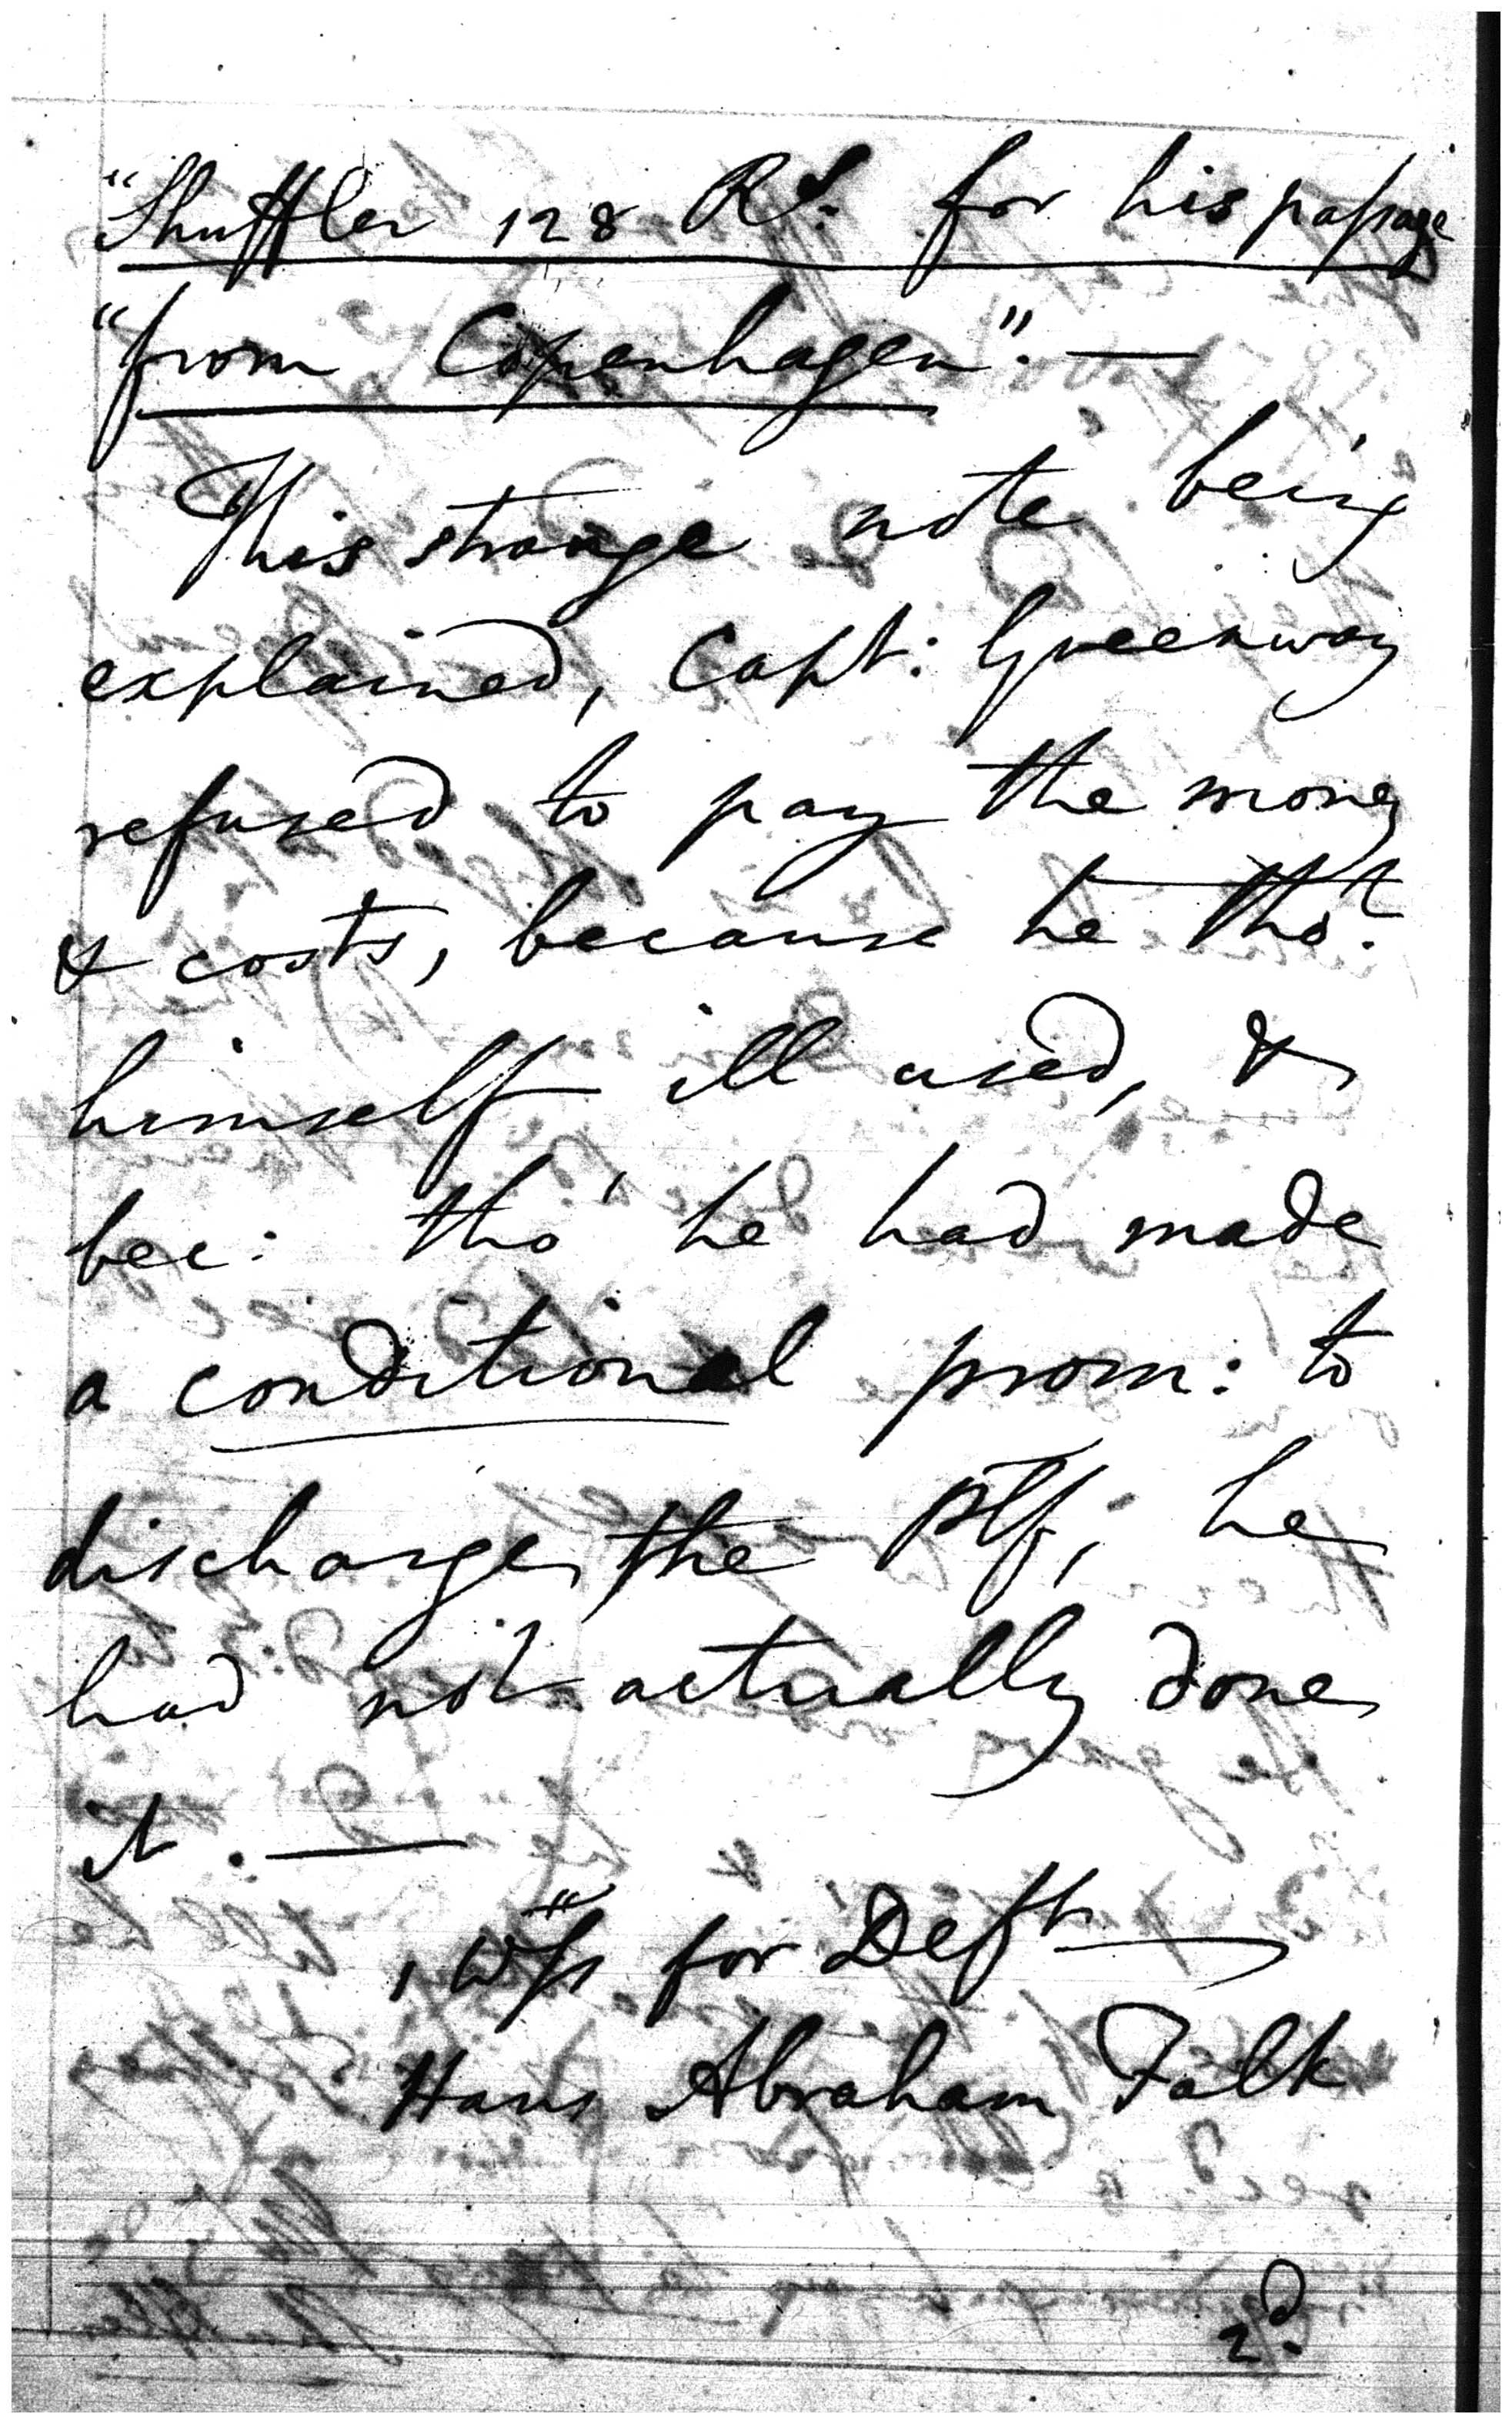 "Shuffler 128 Rs. for his passage
"from Copenhagen". —
This strange note being
explained, Capt: Greenway
refused to pay the money
& costs, because he tho.t
himself ill used, &
bec: tho' he had made
a conditional prom: to
discharge the Plf; he
had not actually done
it. —
1 Wss for Deft —
Hans Abraham Falk
2d.